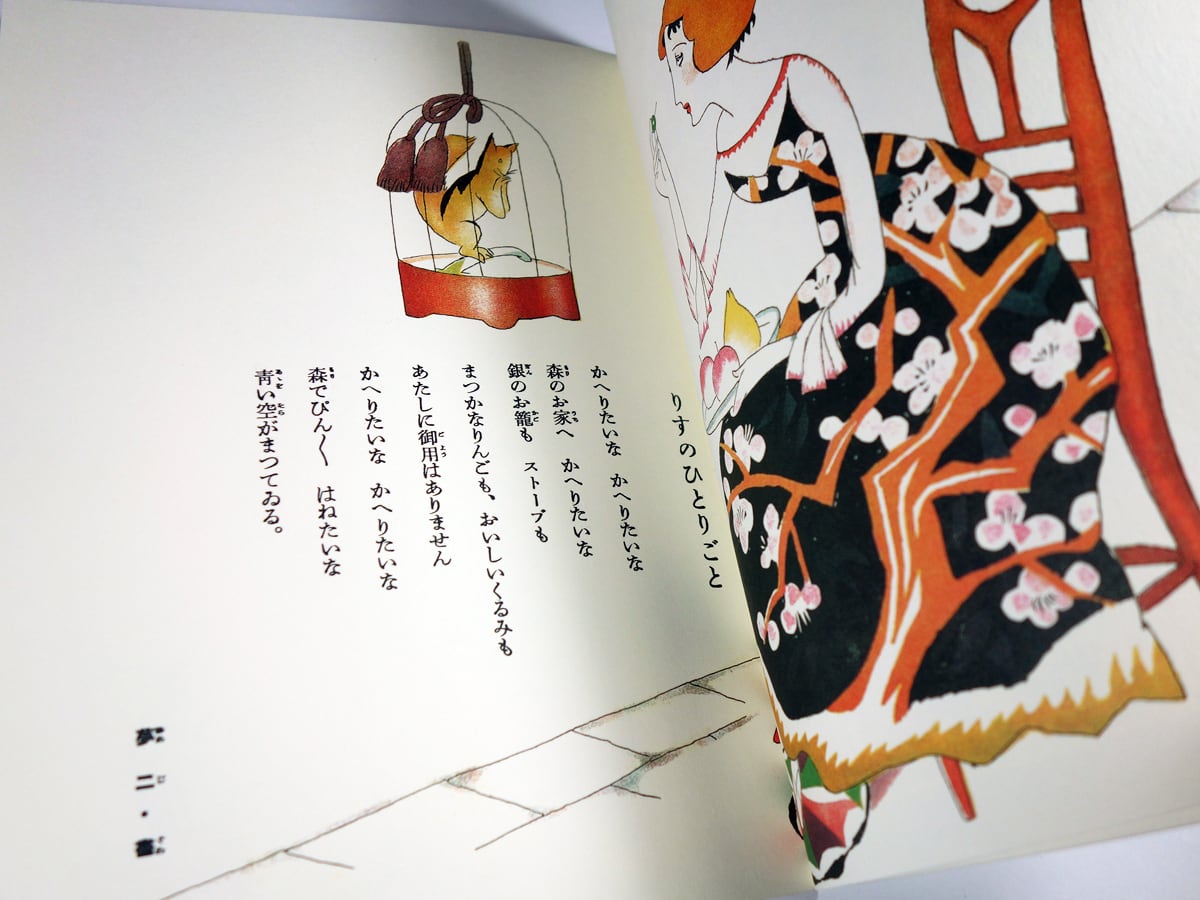 りすのひとりごと
かへりたいな　かへりたいな
森のお家へ　かへりたいな
銀のお籠も　ストーブも
まつかなりんごも、おいしいくるみも
あたしに御用はありません
かへりたいな　かへりたいな
森でぴん〳〵　はねたいな
青い空がまつてゐる。
夢二・畫